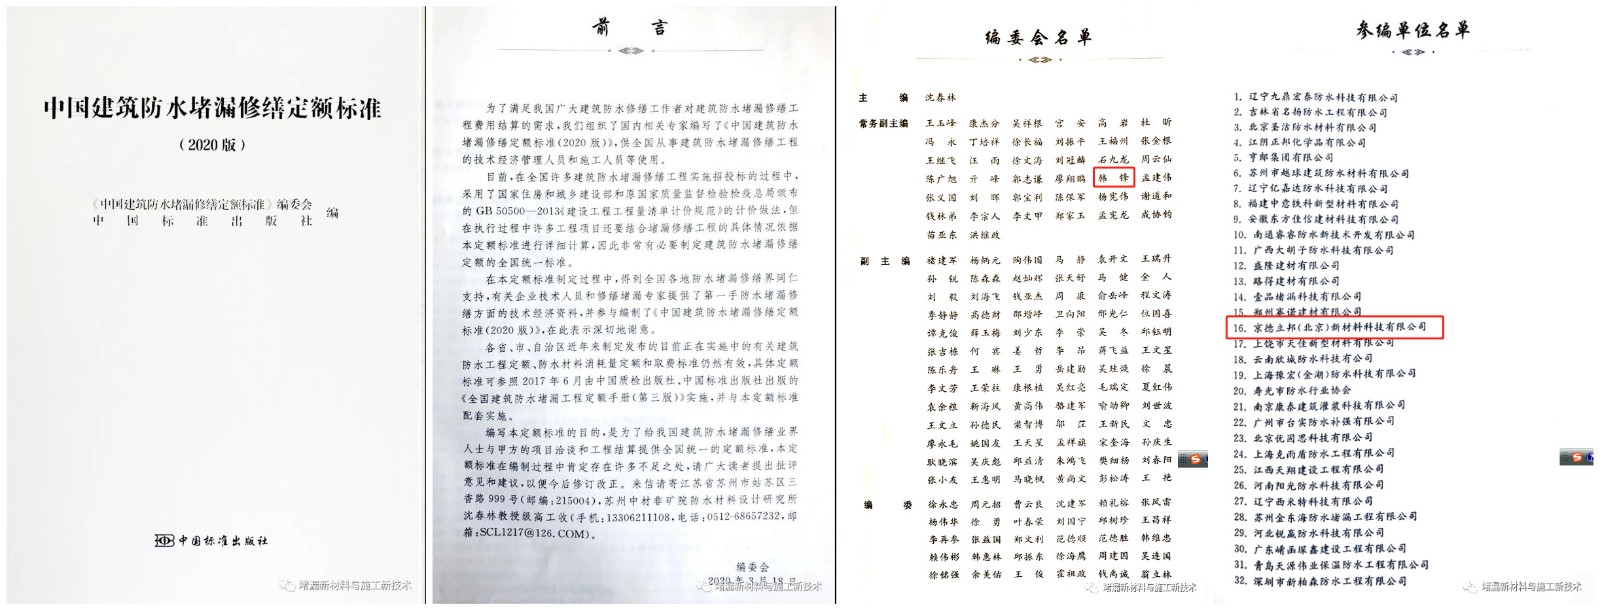 中国建筑防水堵漏修缮定额标准
（2020版）
《中国建筑防水堵漏修缮定额标准》编委会
中国标准出版社 编
中国标准出版社
前言
为了满足我国广大建筑防水修缮工作者对建筑防水堵漏修缮工
程费用结算的需求，我们组织了国内相关专家编写了《中国建筑防水
堵漏修缮定额标准（2020版）》，供全国从事建筑防水堵漏修缮工程
的技术经济管理人员和施工人员等使用。
目前，在全国许多建筑防水堵漏修缮工程实施招投标的过程中，
采用了国家住房和城乡建设部和原国家质量监督检验检疫总局颁布
的GB 50500—2013《建设工程工程量清单计价规范》的计价做法，但
在执行过程中许多工程项目还要结合堵漏修缮工程的具体情况依据
本定额标准进行详细计算，因此非常有必要制定建筑防水堵漏修缮
定额的全国统一标准。
在本定额标准制定过程中，得到全国各地防水堵漏修缮界同仁
支持，有关企业技术人员和修缮堵漏专家提供了第一手防水堵漏修
缮方面的技术经济资料，并参与编制了《中国建筑防水堵漏修缮定额
标准（2020版）》，在此表示深切地谢意。
各省、市、自治区近年来制定发布的目前正在实施中的有关建筑
防水工程定额、防水材料消耗量定额和取费标准仍然有效，具体定额
标准可参照2017年6月由中国质检出版社、中国标准出版社出版的
《全国建筑防水堵漏工程定额手册（第三版）》实施，并与本定额标准
配套实施。
编写本定额标准的目的，是为了给我国建筑防水堵漏修缮业界
人士与甲方的项目洽谈和工程结算提供全国统一的定额标准，本定
额标准在编制过程中肯定存在许多不足之处，请广大读者提出批评
意见和建议，以便今后修订改正。来信请寄江苏省苏州市姑苏区三
香路999号（邮编：215004），苏州中材非矿院防水材料设计研究所
沈春林教授级高工收（手机：13306211108，电话：0512-68657232，邮
箱：SCL1217@126.COM）。
编委会
2020年3月18日
堵漏新材料与施工新技术
编委会名单
主编 沈春林
常务副主编 王玉峰 康杰分 吴祥根 宫安 高岩 杜昕
冯永 丁培祥 徐长福 刘振平 王福州 张金根
王继飞 汪雨 徐文海 刘冠麟 石九龙 周云仙
陈广旭 亓峰 郭志谦 廖翔鹏 韩锋 孟建伟
张义国 刘晖 郭宝利 陈保军 杨宪伟 谢道和
钱林弟 李宗人 李文甲 郑家玉 孟宪龙 成协钧
苗亚东 洪继政
副主编 褚建军 杨炳元 陶伟国 马静 袁开文 王瑞升
孙锐 陈森森 赵灿辉 张天舒 马健 金人
刘毅 刘海飞 钱亚杰 周康 俞岳峰 程文涛
李静静 高德财 邵增峰 卫向阳 郁光仁 位国喜
谭克俊 薛玉梅 刘少东 李荣 吴冬 邱钰明
张吉栋 何宾 姜哲 李昂 蒋飞益 王文星
陈乐舟 王琳 王勇 岳建勋 吴珪焕 徐晨
李文芳 王荣柱 康根植 吴红亮 毛瑞定 夏红伟
袁余粮 靳海风 黄高伟 骆建军 喻幼卿 刘世波
王文立 孙德民 梁智博 邹茳 王新民 文忠
廖永毛 姚国友 王天星 孟祥旗 宋奎海 孙庆生
耿晓滨 吴庆彪 邱益清 朱鸿飞 樊细杨 刘春阳
张小友 王惠明 马晓枫 黄尚文 彭松涛 王艳
编委 徐永忠 周元招 曹云良 沈建军 赖礼榕 张凤雷
杨伟华 徐勇 叶春荣 刘国宁 邱树珍 王昌祥
李再参 张益国 郑文利 范德顺 范德胜 韩维忠
赖伟彬 韩惠林 邱振东 徐海鹰 周建国 吴连国
徐铭强 余美佑 王俊 霍祖政 钱禹诚 翁立林
堵漏新材料与施工新技术
参编单位名单
1. 辽宁九鼎宏泰防水科技有限公司
2. 吉林省名扬防水工程有限公司
3. 北京圣洁防水材料有限公司
4. 江阴正邦化学品有限公司
5. 亨邸集团有限公司
6. 苏州市越球建筑防水材料有限公司
7. 辽宁亿嘉达防水科技有限公司
8. 福建中意铁科新型材料有限公司
9. 安徽东方佳信建材科技有限公司
10. 南通睿睿防水新技术开发有限公司
11. 广西大胡子防水科技有限公司
12. 盛隆建材有限公司
13. 路得建材有限公司
14. 壹品堵漏科技有限公司
15. 郑州赛诺建材有限公司
16. 京德立邦（北京）新材料科技有限公司
17. 上饶市天佳新型材料有限公司
18. 云南欣城防水科技有限公司
19. 上海豫宏（金湖）防水科技有限公司
20. 寿光市防水行业协会
21. 南京康泰建筑灌浆科技有限公司
22. 广州市台实防水补强有限公司
23. 北京优固思科技有限公司
24. 上海克雨盾防水工程有限公司
25. 江西天翔建设工程有限公司
26. 河南阳光防水科技有限公司
27. 辽宁西米特科技有限公司
28. 苏州金东海防水堵漏工程有限公司
29. 河北锐赢防水科技有限公司
30. 广东崝函琛鑫建设工程有限公司
31. 青岛天源伟业保温防水工程有限公司
32. 深圳市新柏森防水工程有限公司
堵漏新材料与施工新技术